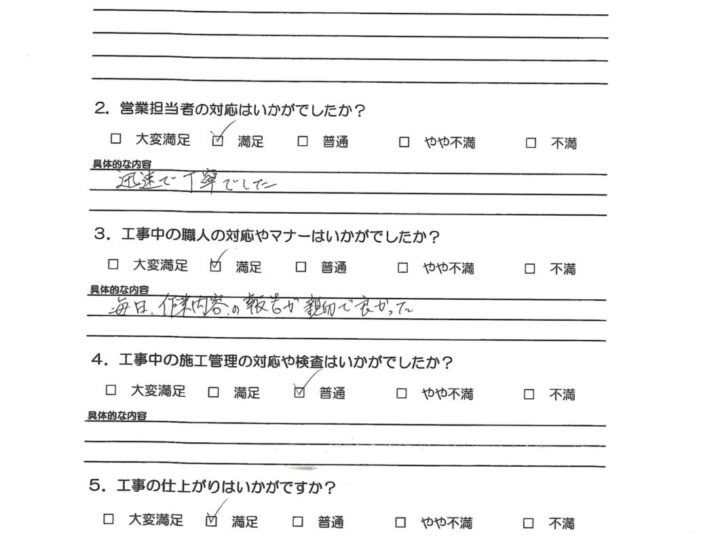 2. 営業担当者の対応はいかがでしたか?
□ 大変満足 ☑ 満足 □ 普通 □ やや不満 □ 不満
具体的な内容
迅速で丁寧でした
3. 工事中の職人の対応やマナーはいかがでしたか?
□ 大変満足 ☑ 満足 □ 普通 □ やや不満 □ 不満
具体的な内容
毎日、作業内容の報告が親切で良かった
4. 工事中の施工管理の対応や検査はいかがでしたか?
□ 大変満足 □ 満足 ☑ 普通 □ やや不満 □ 不満
具体的な内容
5. 工事の仕上がりはいかがですか?
□ 大変満足 ☑ 満足 □ 普通 □ やや不満 □ 不満